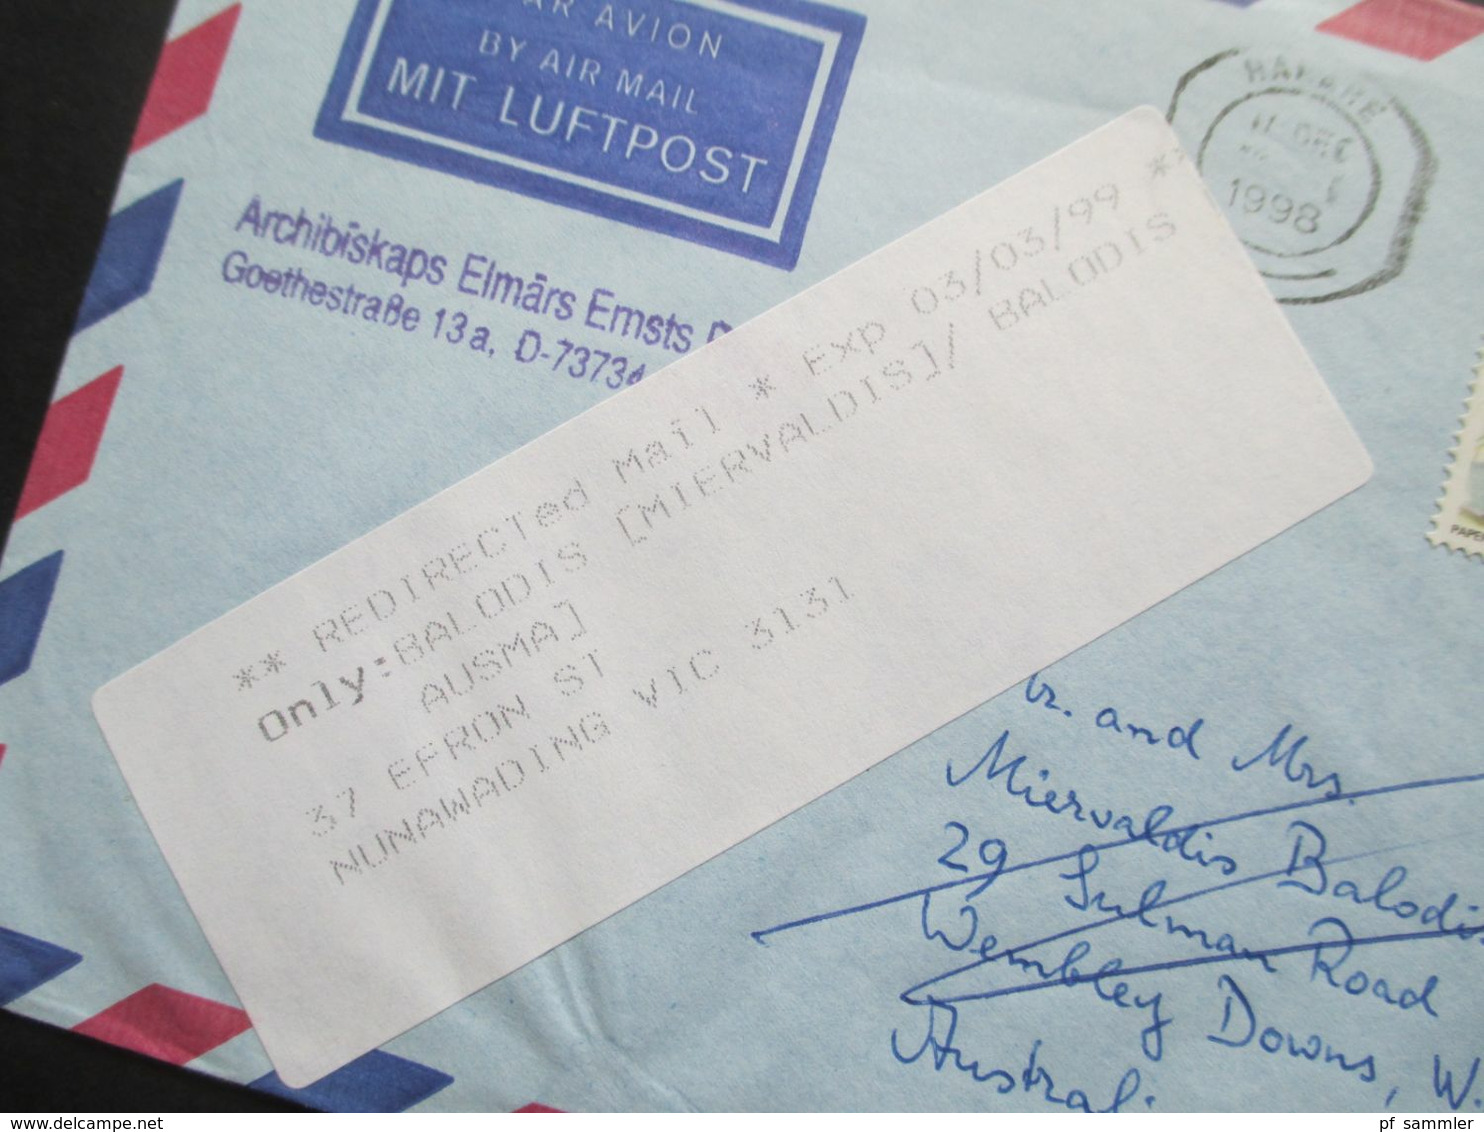 PAR AVION
BY AIR MAIL
MIT LUFTPOST
HARARE
DEC
1998
Archibīskaps Elmārs Ernsts
Goethestraße 13a, D-73734
** REDIRECTed Mail * Exp 03/03/99 **
Only:BALODIS [MIERVALDIS]/ BALODIS
AUSMA]
37 EFRON ST
NUNAWADING VIC 3131
and Mrs.
Miervaldis Balodis
29 Sulman Road
Wembley Downs, W.
Australia
www.delcampe.net
pf_sammler